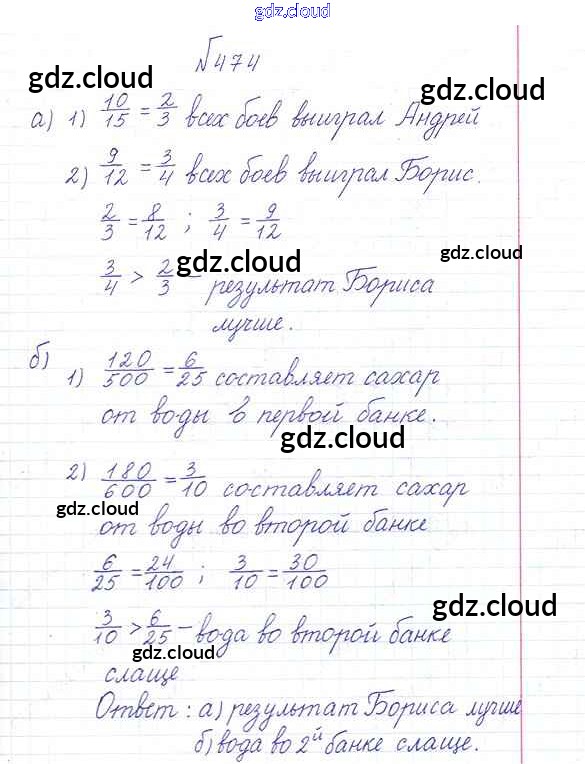 gdz.cloud
№474
gdz.cloud
gdz.cloud
а) 1) 10/15 = 2/3 всех боев выиграл Андрей
2) 9/12 = 3/4 всех боев выиграл Борис.
2/3 = 8/12 ; 3/4 = 9/12
gdz.cloud
gdz.cloud
3/4 > 2/3 – результат Бориса
лучше.
gdz.cloud
б)
1) 120/500 = 6/25 составляет сахар
от воды в первой банке.
gdz.cloud
2) 180/600 = 3/10 составляет сахар
gdz.cloud
от воды во второй банке
6/25 = 24/100 ; 3/10 = 30/100
gdz.cloud
3/10 > 6/25 – вода во второй банке
слаще
Ответ : а) результат Бориса лучше
б) вода во 2й банке слаще.